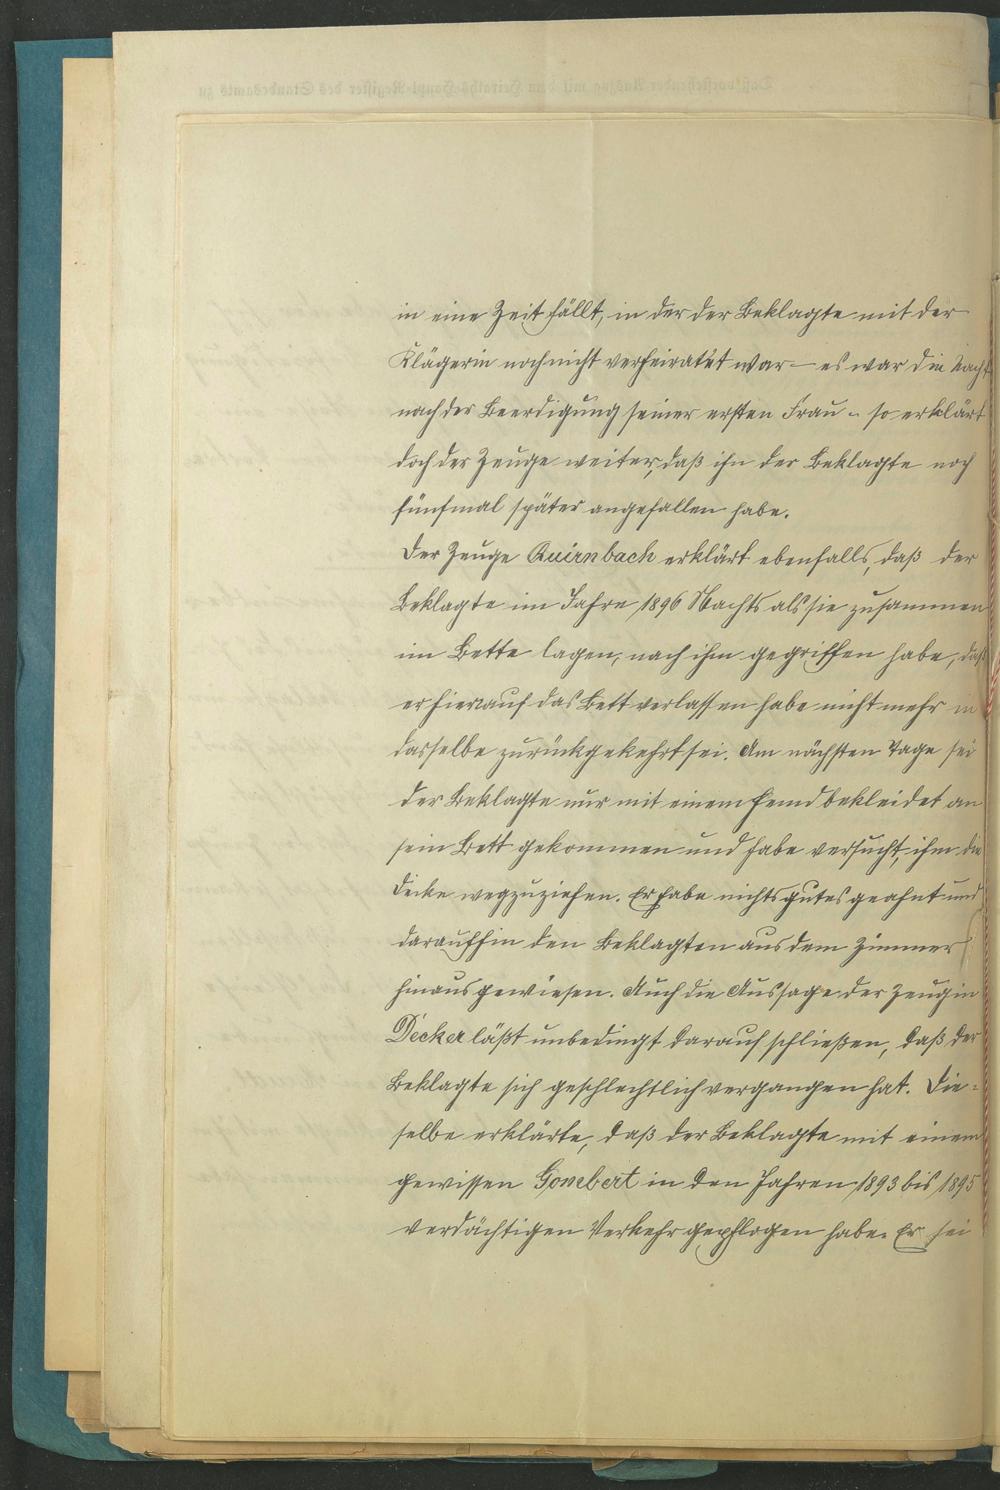 in eine Zeit fällt, in der der Beklagte mit der
Klägerin noch nicht verheiratet war – es war die Nacht
nach der Beerdigung seiner ersten Frau – so erklärt
doch der Zeuge weiter, daß ihn der Beklagte noch
fünfmal später angefallen habe.
Der Zeuge Quirnbach erklärt ebenfalls, daß der
Beklagte im Jahre 1896 Nachts als sie zusammen
im Bette lagen, nach ihm gegriffen habe, daß
er hierauf das Bett verlassen habe nicht mehr in
dasselbe zurückgekehrt sei. Am nächsten Tage sei
der Beklagte nur mit einem Hemd bekleidet an
sein Bett gekommen und habe versucht, ihm die
Decke wegzuziehen. Er habe nichts gutes geahnt und
daraufhin den Beklagten aus dem Zimmer
hinausgewiesen. Auch die Aussage der Zeugin
Decker läßt unbedingt darauf schließen, daß der
Beklagte sich geschlechtlich vergangen hat. Die-
selbe erklärte, daß der Beklagte mit einem
gewissen Gombert in den Jahren 1893 bis 1895
verdächtigen Verkehr gepflogen habe. Er sei